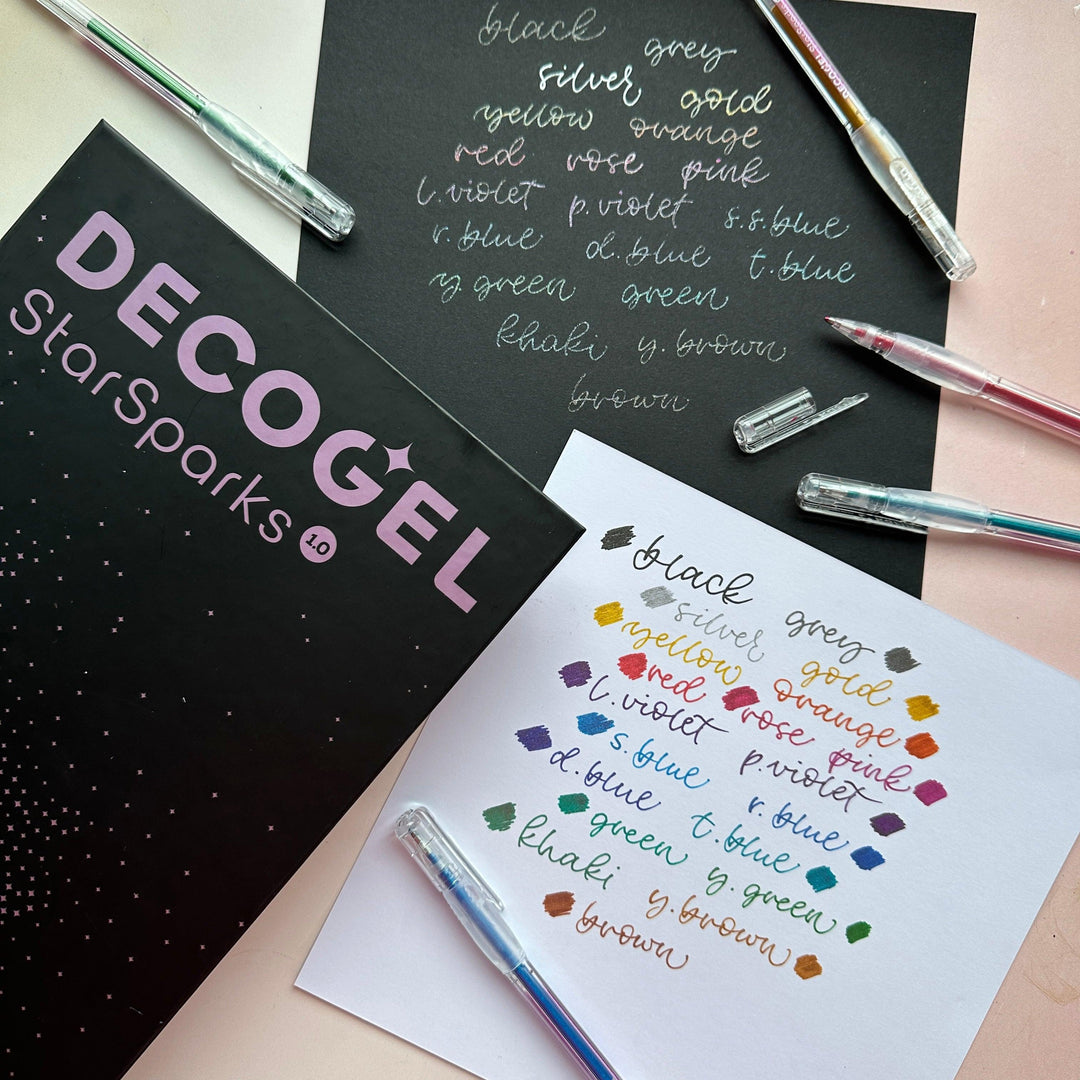 DECOGEL
StarSparks 1.0
black grey
silver gold
yellow orange
red rose pink
l.violet p.violet s.s.blue
r.blue d.blue t.blue
y.green green
khaki y.brown
brown
DECOGEL
black grey
silver
yellow gold
red orange
l.violet rose pink
s.blue p.violet
d.blue r.blue
t.blue
green y.green
khaki
y.brown
brown